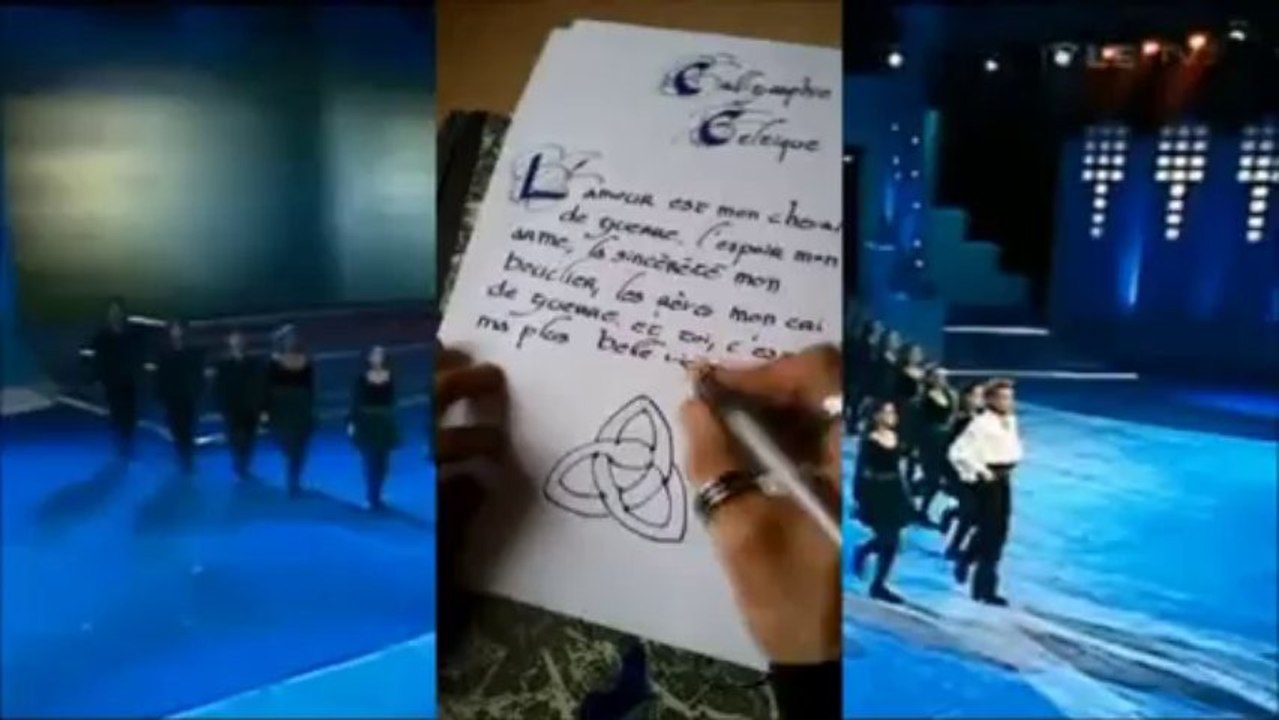 Calligraphie
Celtique
L'amour est mon cheval
de guerre, l'espoir mon
arme, la sincérité mon
bouclier, les rêves mon cri
de guerre et toi, c'es
ma plus belle